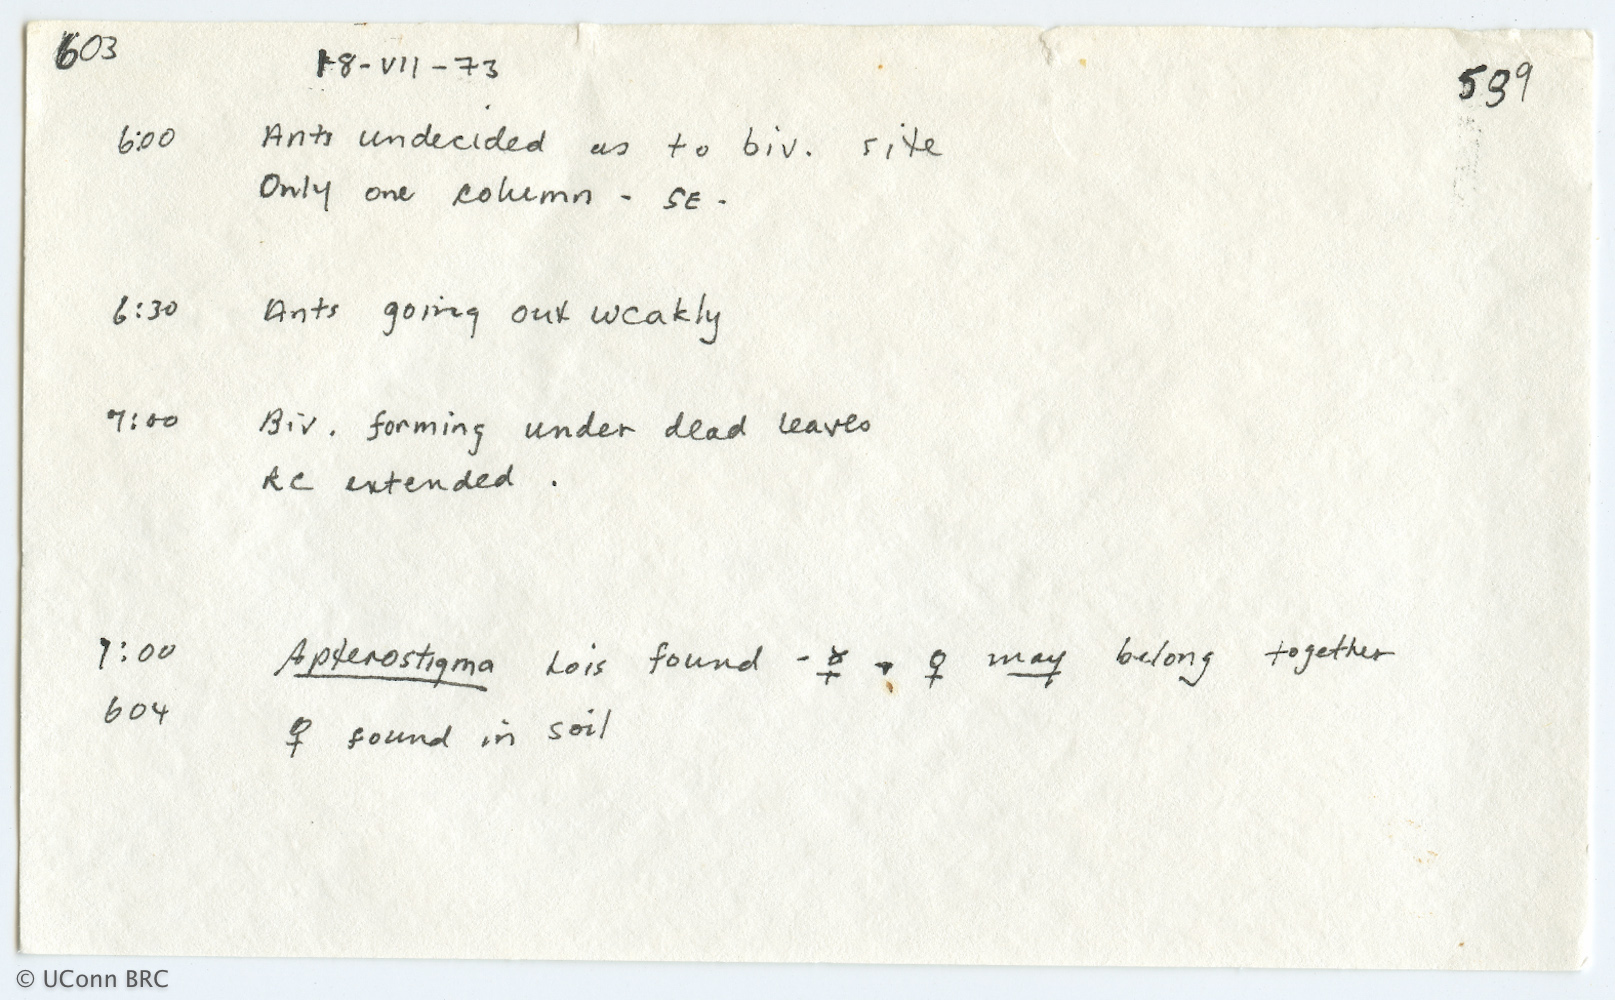 603
18-VII-73
539
6:00 Ants undecided as to biv. site
Only one column - SE.
6:30 Ants going out weakly
7:00 Biv. forming under dead leaves
RC extended.
7:00 Apterostigma Lois found - ☿ + ♀ may belong together
604 ♀ found in soil
© UConn BRC